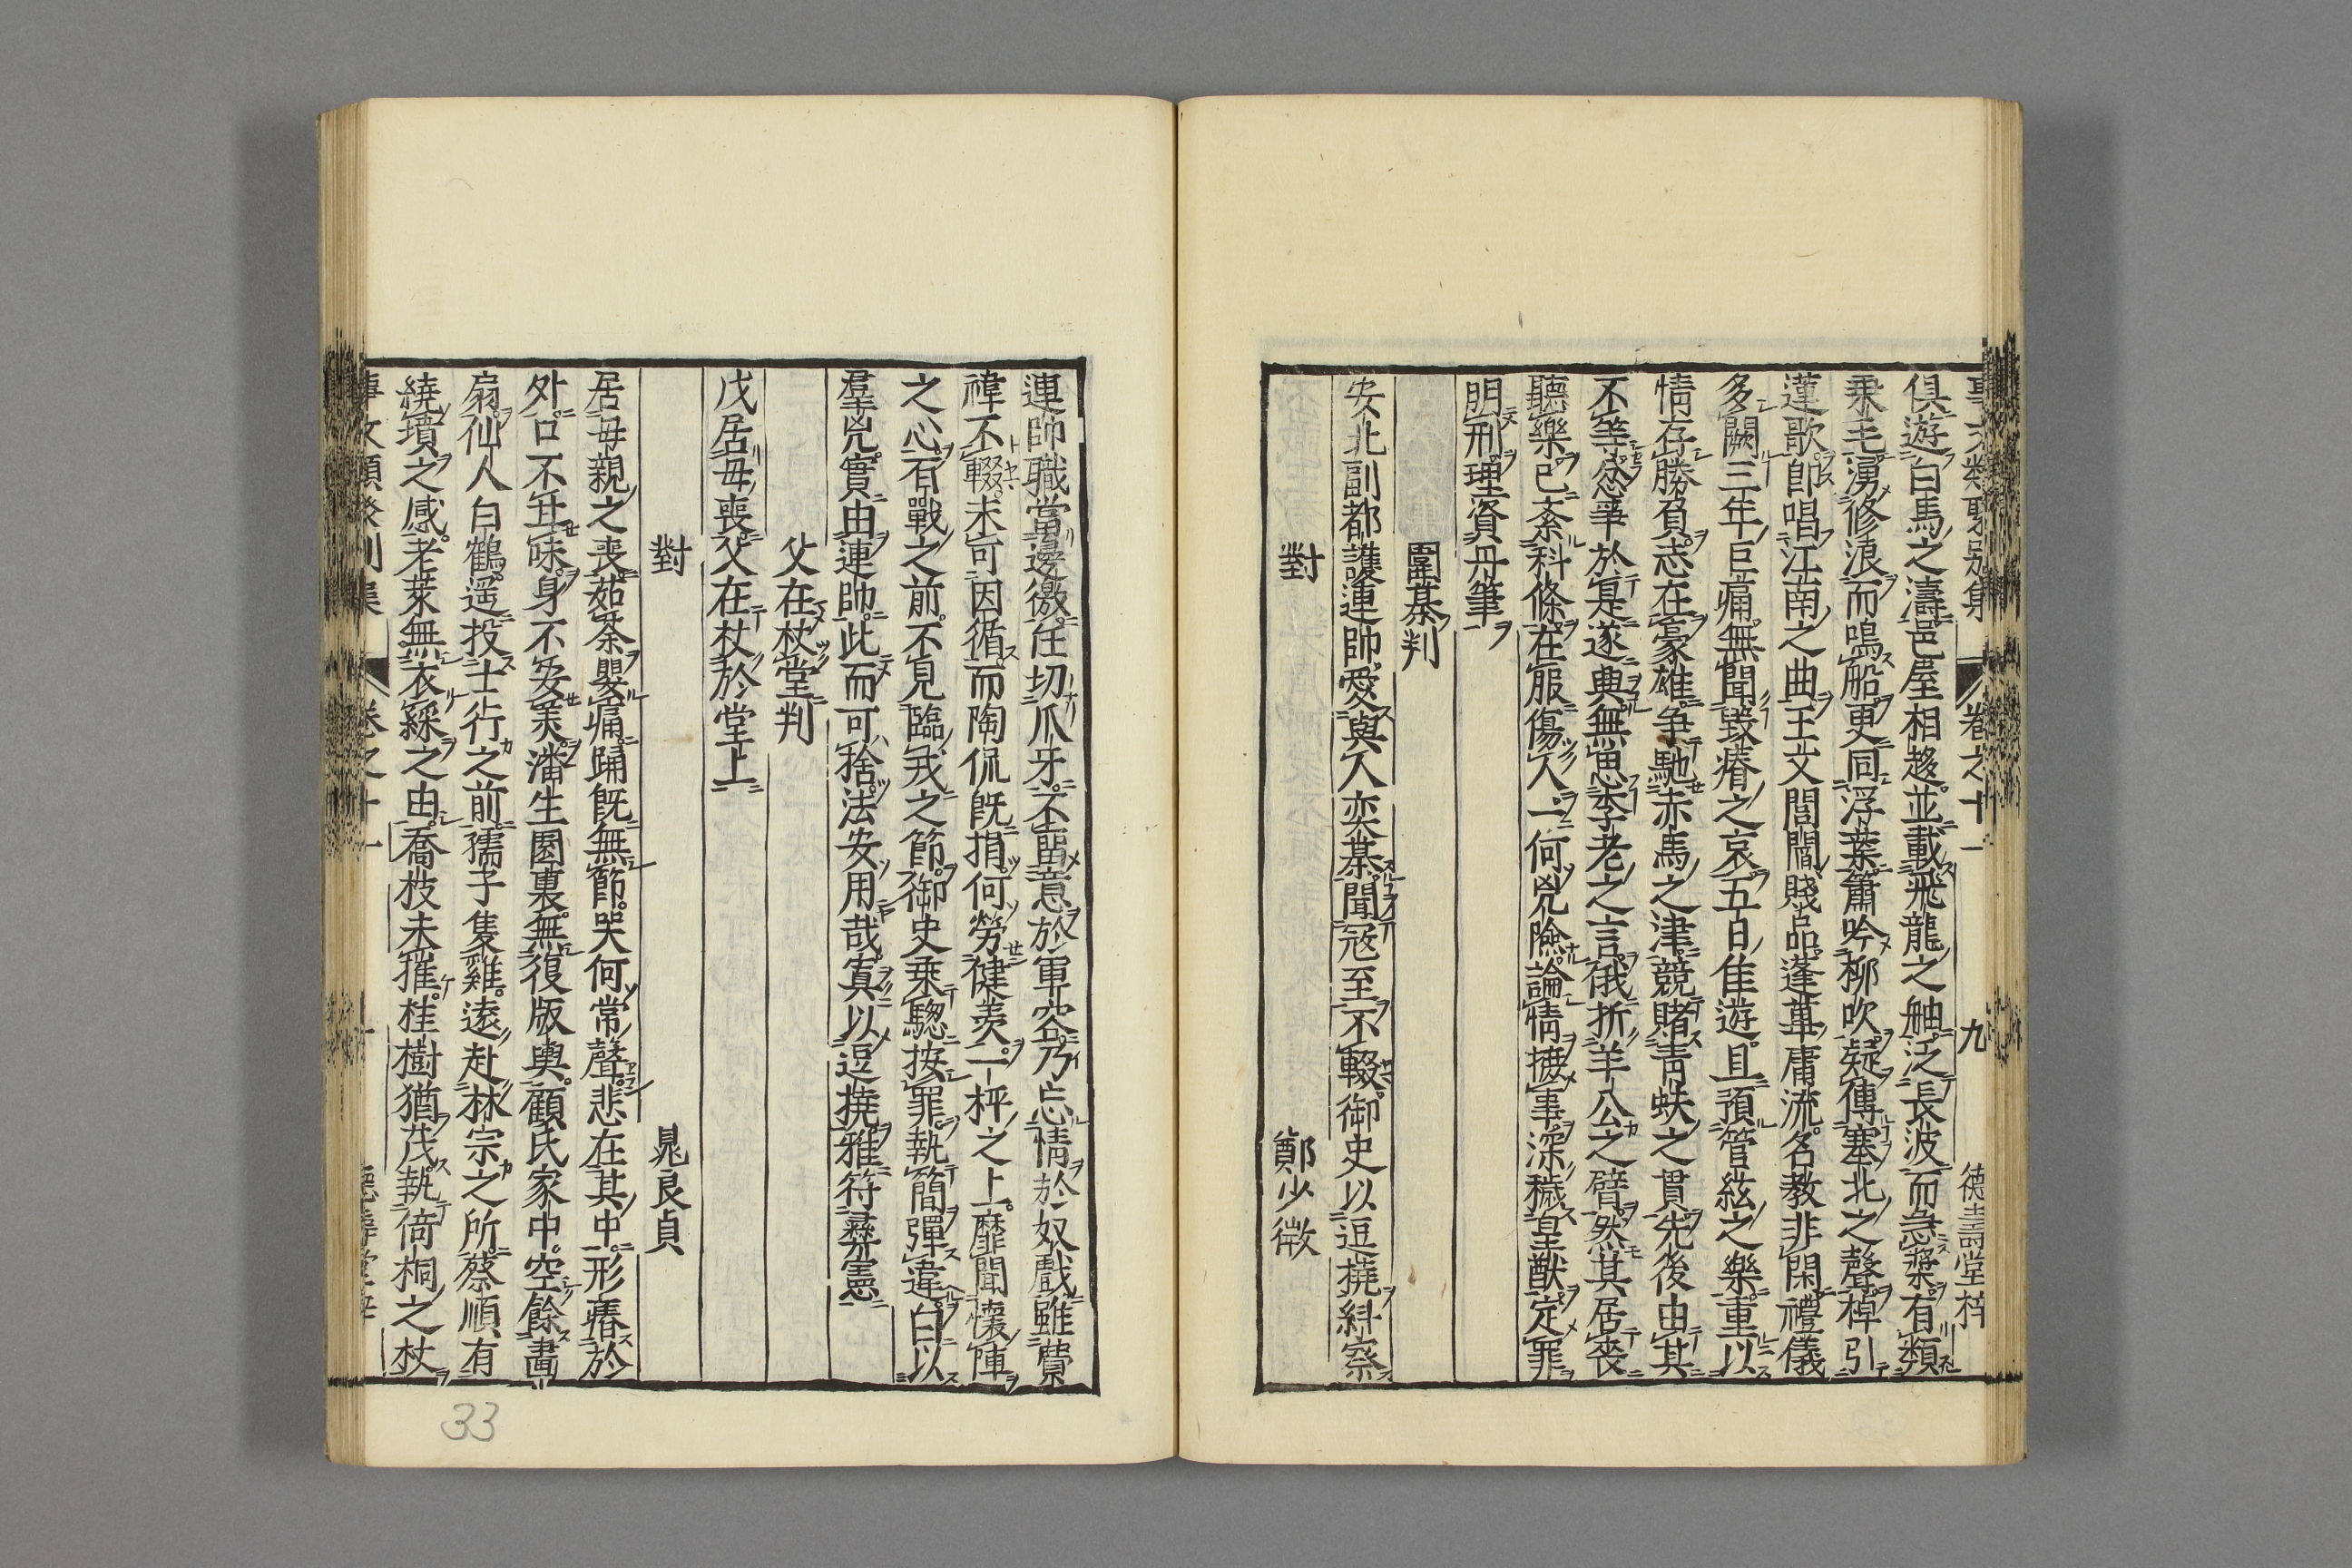 卷之十一 九 德壽堂梓
俱遊白馬之濤邑屋相趍並載飛龍之舳泛長波而急槳有類
乗毛湧修浪而鳴船更同浮葉簫吟柳吹疑傳塞北之聲棹引
蓮歌即唱江南之曲王文閭閻賤品蓬蓽庸流名教非閑禮儀
多闕三年巨痛無聞毀瘠之哀五日隹遊且預管絃之樂重以
情存勝負志在豪雄爭馳赤馬之津競賭青蚨之貫先後由其
不等忿爭於是遂興無思李老之言俄折羊公之臂然其居喪
聽樂已紊科條在服傷人一何兇險論情撫事深穢皇猷定罪
明刑理資丹筆
圍棊判
安北副都護連帥愛與人奕棊聞冦至不輟御史以逗撓糾察
對 鄭少微
連帥職當邊徼任切爪牙不留意於軍容乃忘情於奴戲雖費
禕不輟未可因循而陶侃旣捐何勞健羡一枰之上靡聞懷陣
之心有戰之前不見臨戎之節御史乗驄按罪執簡彈違白以
羣兇實由連帥此而可捨法安用哉寘以逗撓雅符彛憲
父在杖堂判
戊居母喪父在杖於堂上
對 晁良貞
居母親之喪茹荼嬰痛踊旣無節哭何常聲悲在其中形瘠於
外口不甘味身不安羙潘生園裏無復版輿顧氏家中空餘畵
扇仙人白鶴遥投士行之前孺子隻雞逺赴林宗之所蔡順有
繞墳之感老萊無衣綵之由喬枝未摧桂樹猶茂執倚桐之杖
卷之十一
33